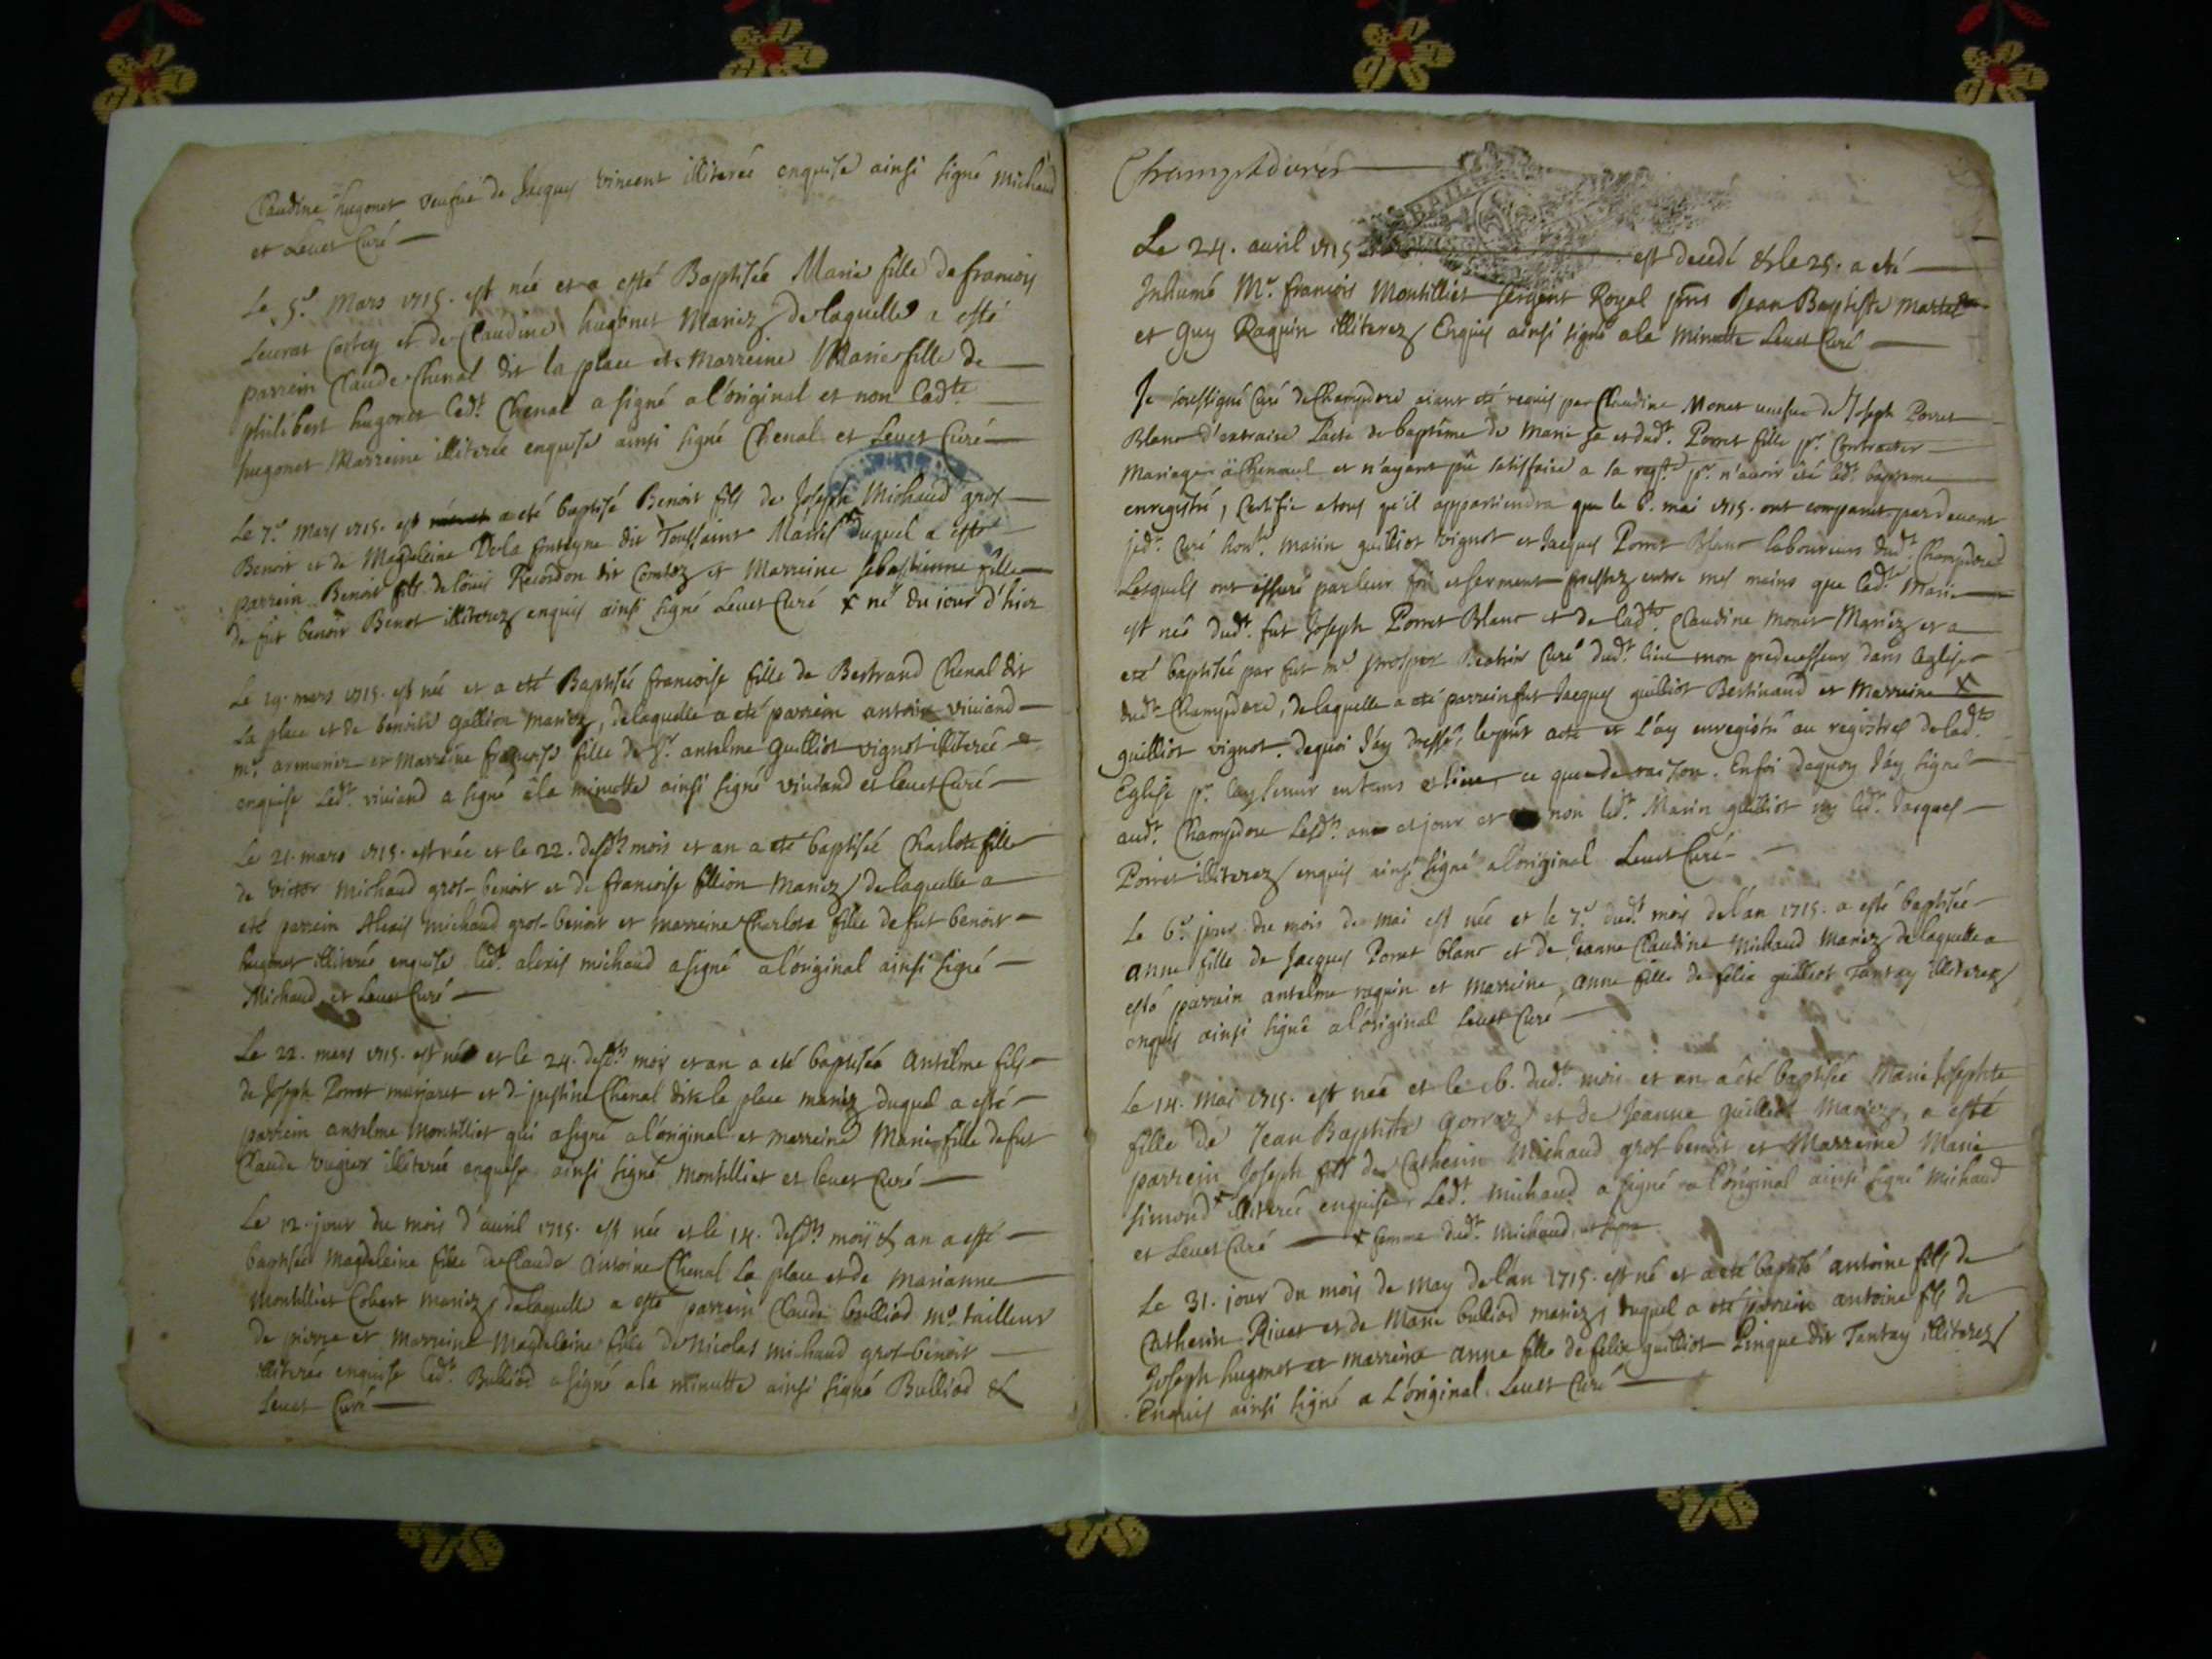 Claudine hugonet veufue de Jacques vincent illiterée enquise ainsi signé michaud
et Levet Curé
Le 5e. Mars 1715. est née et a esté Baptisée Marie fille de francois
et de Claudine hugonet Mariez, de laquelle a esté
parrein Claude Chenal dit la place et Marreine Marie fille de
philibert hugonet ledt. Chenal a signé a l'original et non ladte.
hugonet Marreine illiterée enquise ainsi signé Chenal et Levet Curé
Le 7e. Mars 1715. est a eté baptisé Benoit fils de Joseph Michaud gros
Benoit et de Magdeleine Dela fonteyne dit Toussaint Mariés duquel a esté
parrein Benoit fils de louis Recordon dit Comtez et Marreine sebastienne fille
de fut benoit Benet illiterez enquis ainsi signé Levet Curé x né du jour d'hier
Le 19. mars 1715. est née et a eté Baptisée francoise fille de Bertrand Chenal dit
La place et de benoite gallion mariez, de laquelle a eté parrein antoine viviand
me. armurier et Marreine francoise fille de Sr. anselme Guilliot vignot illiterée
enquise Ledt. viviand a signé a la minutte ainsi signé viviand et levet Curé
Le 21. mars 1715. est née et le 22. desdts mois et an a eté baptisée Charlote fille
de victor Michaud gros-benoit et de francoise fillion Mariez de laquelle a
eté parrein Alexis michaud gros-benoit et marreine Charlote fille de fut benoit
hugonet illiterée enquise ledt. alexis michaud a signé a l'original ainsi signé
Michaud et Levet Curé
Le 22. mars 1715. est né et le 24. desdts mois et an a eté baptisée Antelme fils
de Joseph Porret murjaret et de justine Chenal dite la place mariez duquel a esté
parrein antelme Montilliet qui a signé a l'original et marreine Marie fille de fut
Claude vugier illiterée enquise ainsi signé Montilliet et levet Curé
Le 12. jour du mois d'avril 1715. est née et le 14. desdts mois & an a esté
baptisée Magdeleine fille de Claude Antoine Chenal La place et de Marianne
Montilliet Cobert mariez, de laquelle a esté parrein Claude bulliod me. tailleur
de pierre et marreine Magdeleine fille de Nicolas michaud gros-benoit
illiterée enquise ledt. Bulliod a signé a la minutte ainsi signé Bulliod &
Levet Curé
Champdorer
Le 24. avril 1715 est decedé & le 25. a eté
Inhumé Mr. francois Montilliet sergent Royal pnts Jean Baptiste Martel
et Guy Raquin illiterez Enquis ainsi signé a la Minutte Levet Curé
Je soussigné Curé de Champdore aiant eté requis par Claudine Monet veufue de Joseph Porret
Blanc d'extraire l'acte de baptême de Marie sa et dudt. Porret fille pr. Contracter
Mariage a et n'ayant pû satisfaire a sa reqte. pr. n'avoir été ledt. baptême
enregistré, Certifie a tous qu'il appartiendra que le 6. mai 1715. ont comparut pardevant
jedt. Curé hontes. Marin guilliot vignot et Jacques Porret Blanc laboureurs dudt. Champdore
Lesquels ont assuré par leur foi et serment prestez entre mes mains que ladte. Marie
est née dudt. fut Joseph Porret Blanc et de ladte. Claudine Monet Mariez et a
eté baptisée par fut mre prosper Curé dudt. lieu mon predecesseur dans leglise
dudt Champdore, de laquelle a eté parrein fut Jacques guilliot Bertinand et Marreine
guilliot vignot. dequoi J'ay dressé, le pnt acte et L'ay enregistré au registres de ladte.
Eglise pr. luy servir en tems et lieu, ce que de raison. En foi dequoy J'ay signé
audt. Champdore Lesdts. an et jour et non ledt. Marin guilliot ny ledt. Jacques
Porret illiterez enquis ainsi signé a l'original Levet Curé
Le 6e. jour du mois de mai est née et le 7e. dudt. mois de l'an 1715. a esté baptisée
anne fille de Jacques Porret blanc et de Jeanne Claudine Michaud Mariez de laquelle a
esté parrain antelme raquin et Marreine, anne fille de felix guilliot Tantay illiterez
enquis ainsi signé a l'original Levet Curé
Le 14. Mai 1715. est née et le 16. dudt. mois et an a été baptisée Marie Josephte
fille de Jean Baptiste Gorraz et de Jeanne guilliot Mariez, a esté
parrein Joseph fils de Catherin Michaud gros benoit et Marreine Marie
simond x illiterée enquise, Ledt. michaud a signé a l'original ainsi signé michaud
et Levet Curé x femme dudt. Michaud
Le 31. jour du mois de may de l'an 1715. est né et a eté baptisé antoine fils de
Catherin Rivet et de Marie bulliod mariez, duquel a eté parrein antoine fils de
Joseph hugonet et marreine anne fille de felix guilliot Pinque dit Tantay illiterez
Enquis ainsi signé a L'original. Levet Curé